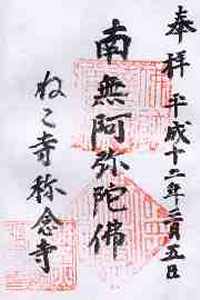 奉拝 平成十二年三月五日
南無阿弥陀佛
ねこ寺称念寺